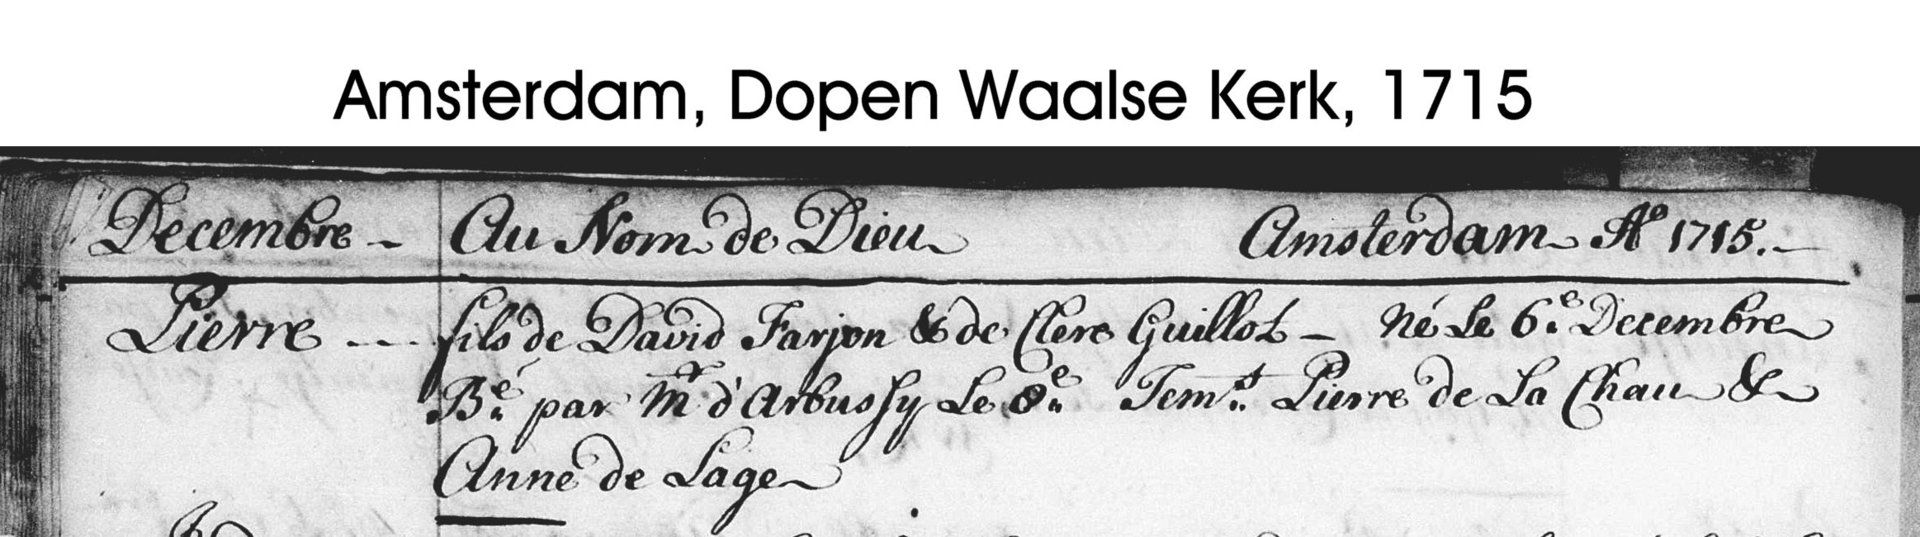 Amsterdam, Dopen Waalse Kerk, 1715
Decembre - Au Nom de Dieu Amsterdam Aº 1715.-
Pierre --- fils de David Farjon & de Clere Guillot - Né Le 6.e Decembre
B.é par Mr d'Arbussy Le 8.e Tem.t Pierre de La Chau &
Anne de Lage